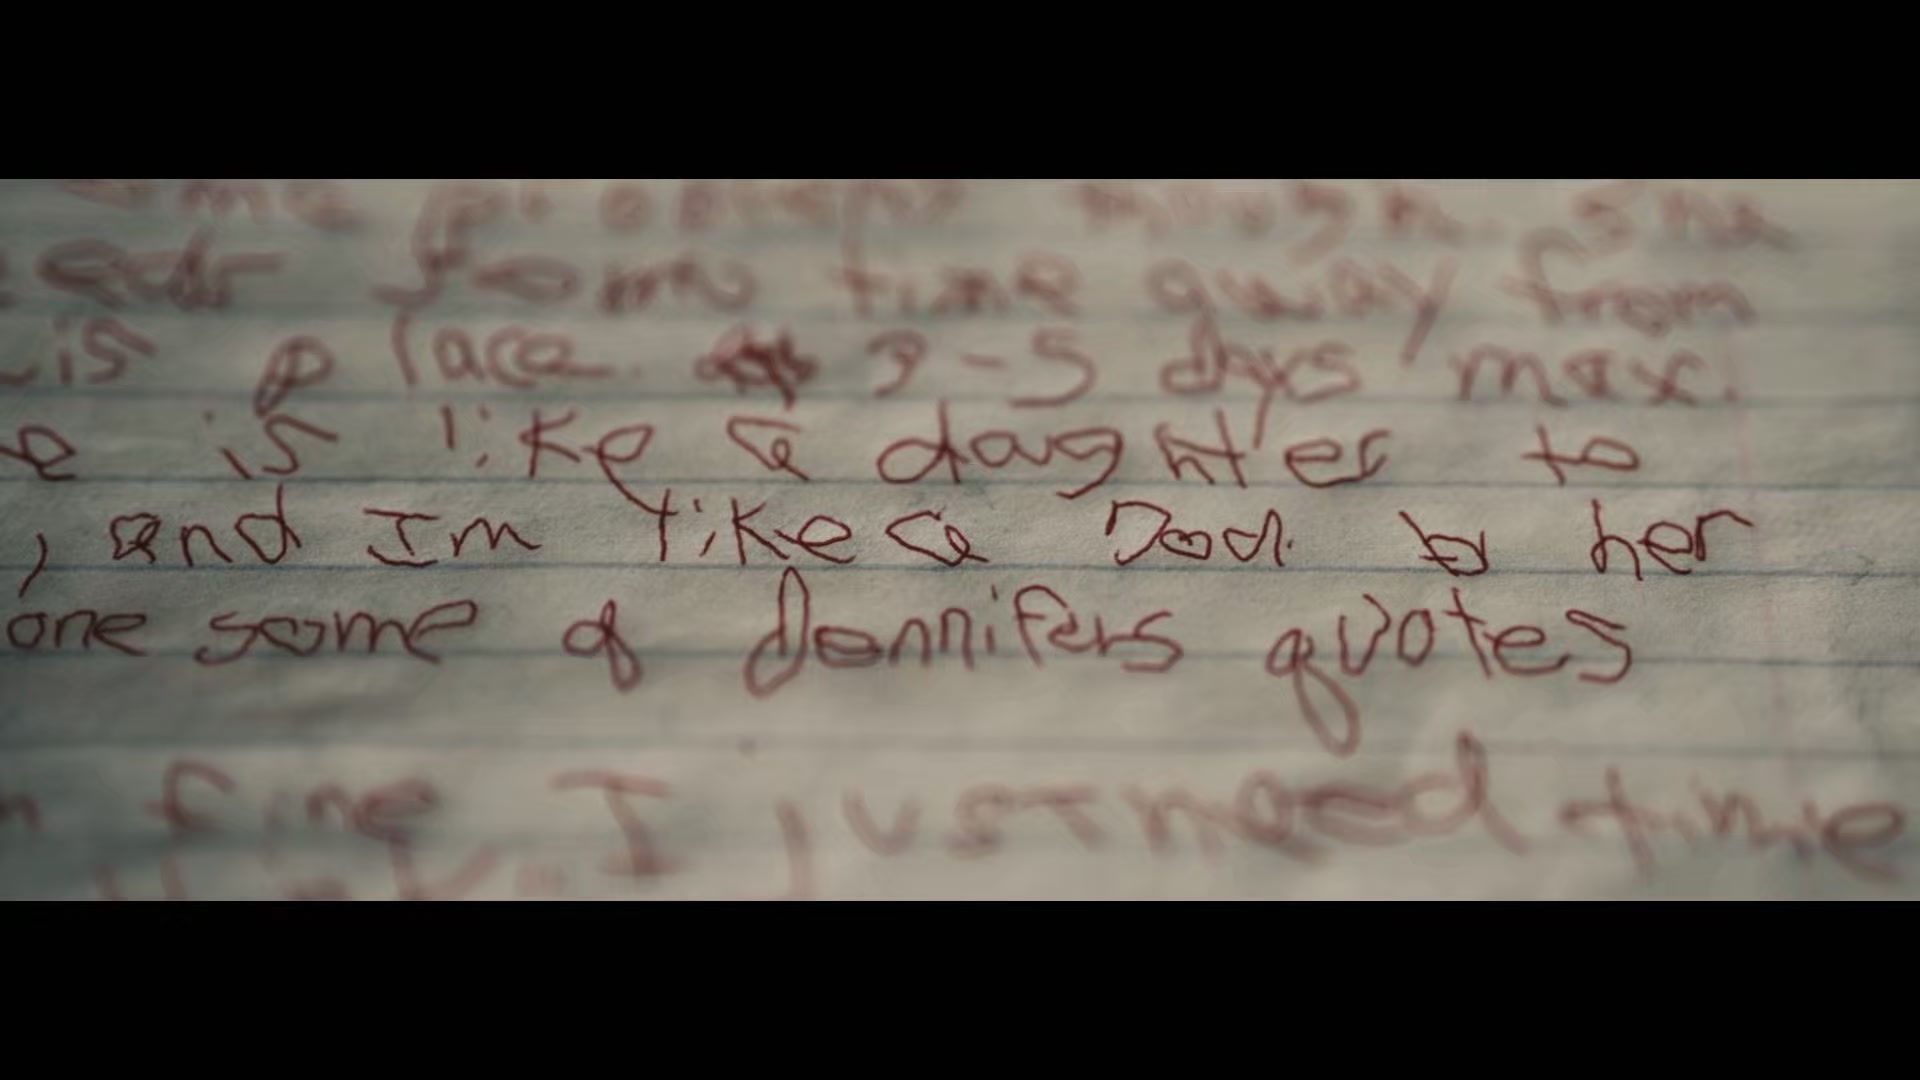 time away from
is place. 3-5 days max.
e is like a daughter to
, and Im like a Dad to her
one some of Jennifers quotes
fine I just need time